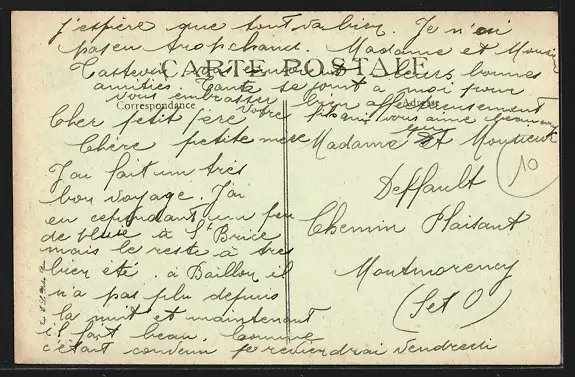 j'espère que tout va bien. Je n'ai
pas eu trop chaud. Madame et Monsieur
leurs bonnes
amitiés. Tante se joint à moi pour
vous embrasser bien affectueusement
CARTE POSTALE
Correspondance
Adresse
Votre fils qui vous aime beaucoup
Cher petit père
Chère petite mère
J'ai fait un très
bon voyage. J'ai
eu cependant un peu
de pluie à St Brice
mais le reste a très
bien été. à Baillon il
n'a pas plu depuis
la nuit et maintenant
il fait beau. Comme
c'était convenu je reviendrai vendredi
Madame et Monsieur
Deffault
Chemin Plaisant
Montmorency
(S et O)
10